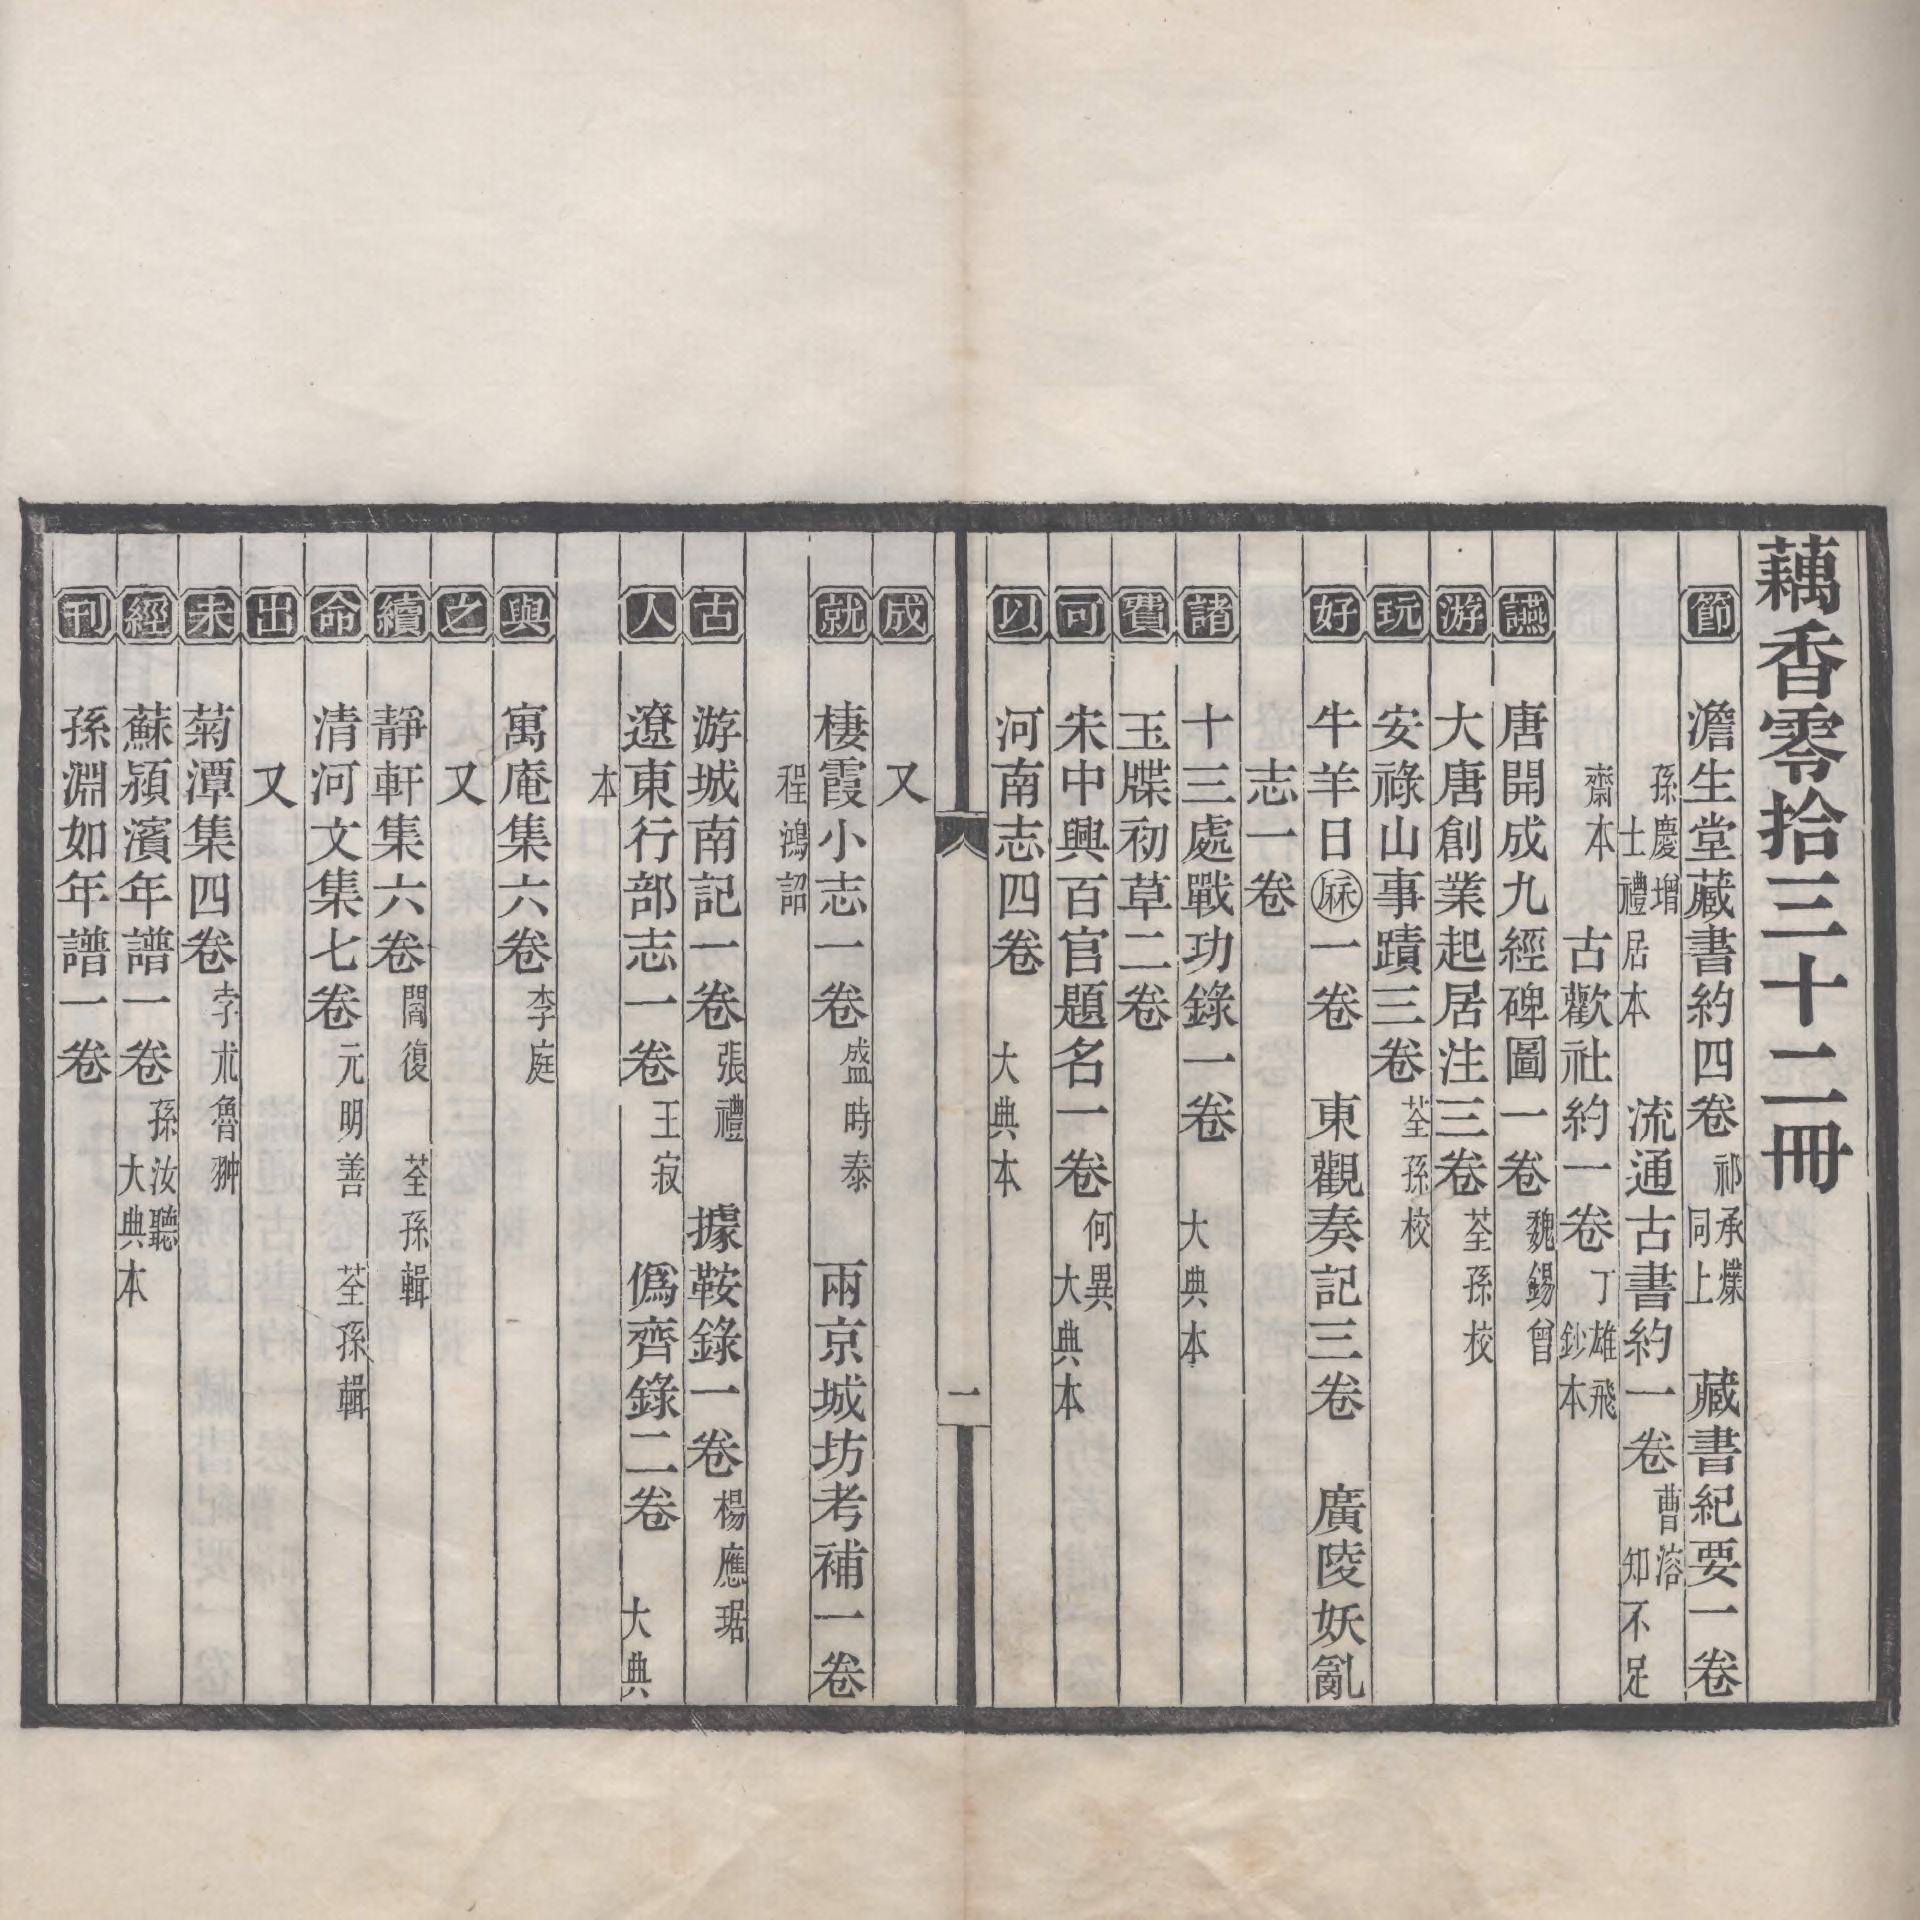 藕香零拾三十二冊
節 澹生堂藏書約四卷 祁承㸁 同上 藏書紀要一卷
孫慶增 士禮居本 流通古書約一卷 曹溶 知不足
齋本 古歡社約一卷 丁雄飛 鈔本
讌 唐開成九經碑圖一卷 魏錫曾
游 大唐創業起居注三卷 荃孫校
玩 安祿山事蹟三卷 荃孫校
好 牛羊日㊊一卷 東觀奏記三卷 廣陵妖亂
志一卷
諸 十三處戰功錄一卷 大典本
費 玉牒初草二卷
可 宋中興百官題名一卷 何異 大典本
以 河南志四卷 大典本
一
成 又
就 棲霞小志一卷 盛時泰 兩京城坊考補一卷
程鴻詔
古 游城南記一卷 張禮 據鞍錄一卷 楊應琚
人 遼東行部志一卷 王寂 僞齊錄二卷 大典
本
與 寓庵集六卷 李庭
之 又
續 靜軒集六卷 閻復 荃孫輯
命 清河文集七卷 元明善 荃孫輯
出 又
未 菊潭集四卷 孛朮魯翀
經 蘇潁濱年譜一卷 孫汝聽 大典本
刊 孫淵如年譜一卷